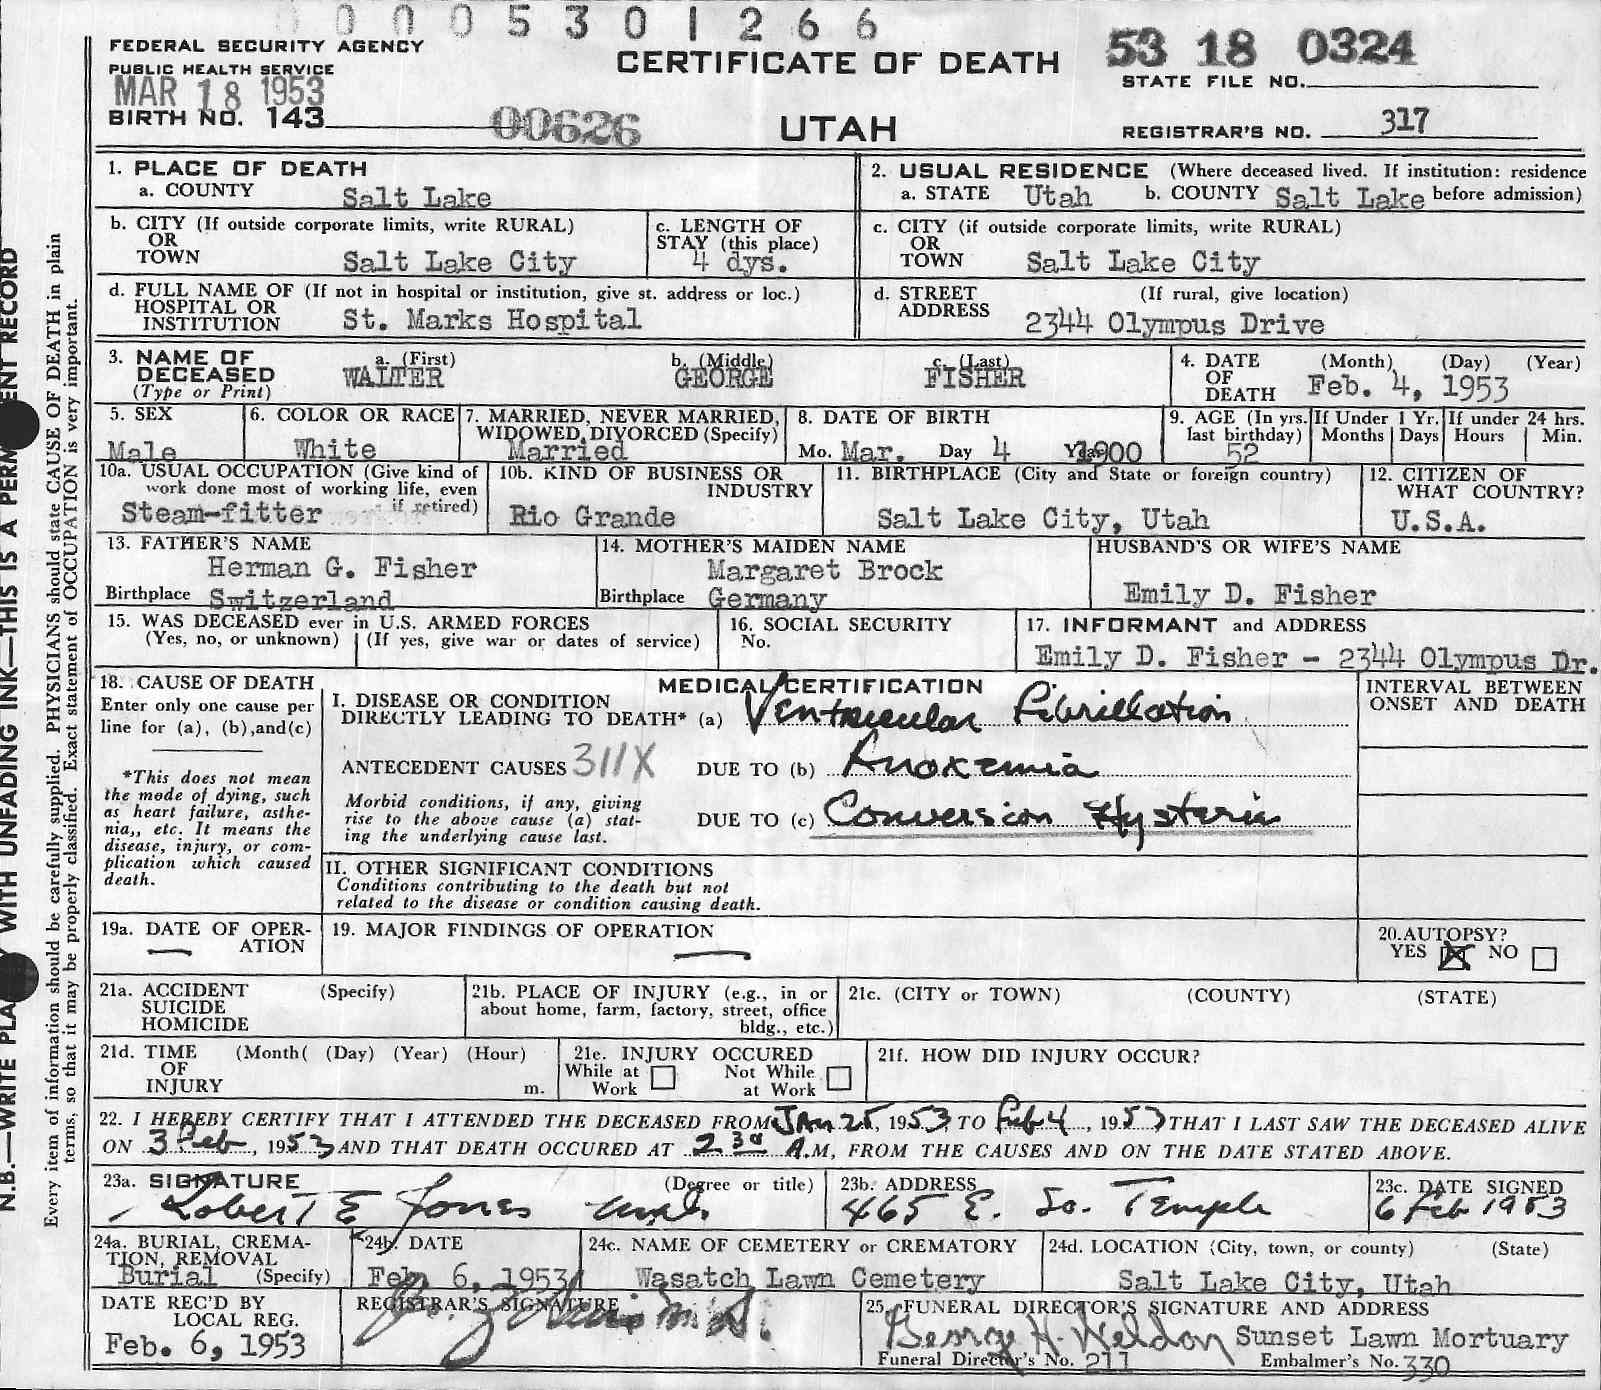 0 0 0 5 3 0 1 2 6 6
FEDERAL SECURITY AGENCY
PUBLIC HEALTH SERVICE
MAR 18 1953
BIRTH NO. 143
00626
CERTIFICATE OF DEATH
UTAH
53 18 0324
STATE FILE NO.
REGISTRAR'S NO. 317
1. PLACE OF DEATH
a. COUNTY Salt Lake
2. USUAL RESIDENCE (Where deceased lived. If institution: residence
a. STATE Utah b. COUNTY Salt Lake before admission)
b. CITY (If outside corporate limits, write RURAL)
OR
TOWN Salt Lake City
c. LENGTH OF
STAY (this place)
4 dys.
c. CITY (if outside corporate limits, write RURAL)
OR
TOWN Salt Lake City
d. FULL NAME OF (If not in hospital or institution, give st. address or loc.)
HOSPITAL OR
INSTITUTION St. Marks Hospital
d. STREET (If rural, give location)
ADDRESS 2344 Olympus Drive
3. NAME OF a. (First) b. (Middle) c. (Last)
DECEASED WALTER GEORGE FISHER
(Type or Print)
4. DATE (Month) (Day) (Year)
OF
DEATH Feb. 4, 1953
5. SEX
Male
6. COLOR OR RACE
White
7. MARRIED, NEVER MARRIED,
WIDOWED, DIVORCED (Specify)
Married
8. DATE OF BIRTH
Mo. Mar. Day 4 Year 1900
9. AGE (In yrs.
last birthday)
52
If Under 1 Yr.
Months Days
If under 24 hrs.
Hours Min.
10a. USUAL OCCUPATION (Give kind of
work done most of working life, even
if retired)
Steam-fitter
10b. KIND OF BUSINESS OR
INDUSTRY
Rio Grande
11. BIRTHPLACE (City and State or foreign country)
Salt Lake City, Utah
12. CITIZEN OF
WHAT COUNTRY?
U.S.A.
13. FATHER'S NAME
Herman G. Fisher
Birthplace Switzerland
14. MOTHER'S MAIDEN NAME
Margaret Brock
Birthplace Germany
HUSBAND'S OR WIFE'S NAME
Emily D. Fisher
15. WAS DECEASED ever in U.S. ARMED FORCES
(Yes, no, or unknown) (If yes, give war or dates of service)
16. SOCIAL SECURITY
No.
17. INFORMANT and ADDRESS
Emily D. Fisher - 2344 Olympus Dr.
18. CAUSE OF DEATH
Enter only one cause per
line for (a), (b), and (c)
*This does not mean
the mode of dying, such
as heart failure, asthe-
nia,, etc. It means the
disease, injury, or com-
plication which caused
death.
MEDICAL CERTIFICATION
I. DISEASE OR CONDITION
DIRECTLY LEADING TO DEATH* (a) Ventricular Fibrillation
ANTECEDENT CAUSES 311X DUE TO (b) Anoxemia
Morbid conditions, if any, giving
rise to the above cause (a) stat-
ing the underlying cause last.
DUE TO (c) Conversion Hysteria
II. OTHER SIGNIFICANT CONDITIONS
Conditions contributing to the death but not
related to the disease or condition causing death.
INTERVAL BETWEEN
ONSET AND DEATH
19a. DATE OF OPER-
ATION
—
19. MAJOR FINDINGS OF OPERATION
—
20. AUTOPSY?
YES X NO
21a. ACCIDENT (Specify)
SUICIDE
HOMICIDE
21b. PLACE OF INJURY (e.g., in or
about home, farm, factory, street, office
bldg., etc.)
21c. (CITY or TOWN) (COUNTY) (STATE)
21d. TIME (Month( (Day) (Year) (Hour)
OF
INJURY m.
21e. INJURY OCCURED
While at Not While
Work at Work
21f. HOW DID INJURY OCCUR?
22. I HEREBY CERTIFY THAT I ATTENDED THE DECEASED FROM Jan 25, 1953 TO Feb 4, 1953 THAT I LAST SAW THE DECEASED ALIVE
ON 3 Feb, 1953 AND THAT DEATH OCCURED AT 2 30 A.M, FROM THE CAUSES AND ON THE DATE STATED ABOVE.
23a. SIGNATURE (Degree or title)
Robert E Jones
23b. ADDRESS
465 E. So. Temple
23c. DATE SIGNED
6 Feb 1953
24a. BURIAL, CREMA-
TION, REMOVAL
Burial (Specify)
24b. DATE
Feb 6, 1953
24c. NAME OF CEMETERY or CREMATORY
Wasatch Lawn Cemetery
24d. LOCATION (City, town, or county) (State)
Salt Lake City, Utah
DATE REC'D BY
LOCAL REG.
Feb. 6, 1953
REGISTRAR'S SIGNATURE
25. FUNERAL DIRECTOR'S SIGNATURE AND ADDRESS
George H. Weldon Sunset Lawn Mortuary
Funeral Director's No. 211 Embalmer's No. 330
Every item of information should be carefully supplied. PHYSICIANS should state CAUSE OF DEATH in plain
terms, so that it may be properly classified. Exact statement of OCCUPATION is very important.